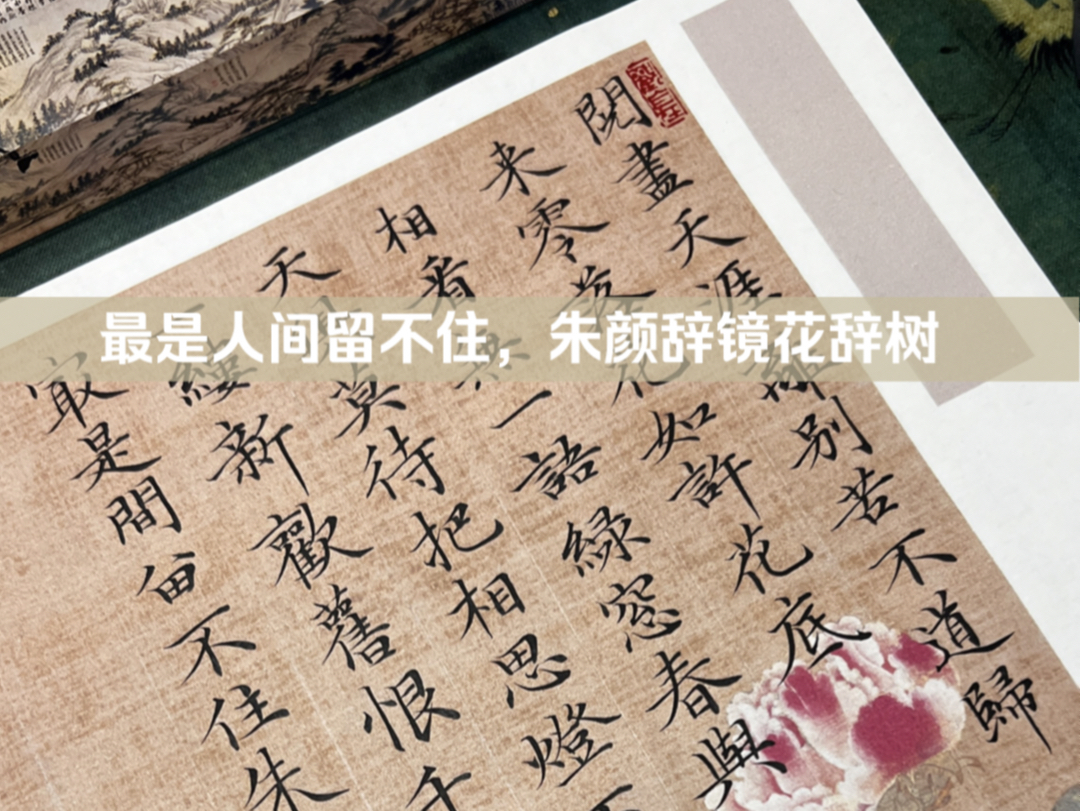 最是人间留不住，朱颜辞镜花辞树
閱盡天涯離別苦不道歸
来零落花如許花底
相看無一語綠窓春與
天俱莫待把相思燈
縷新歡舊恨千
最是間留不住朱